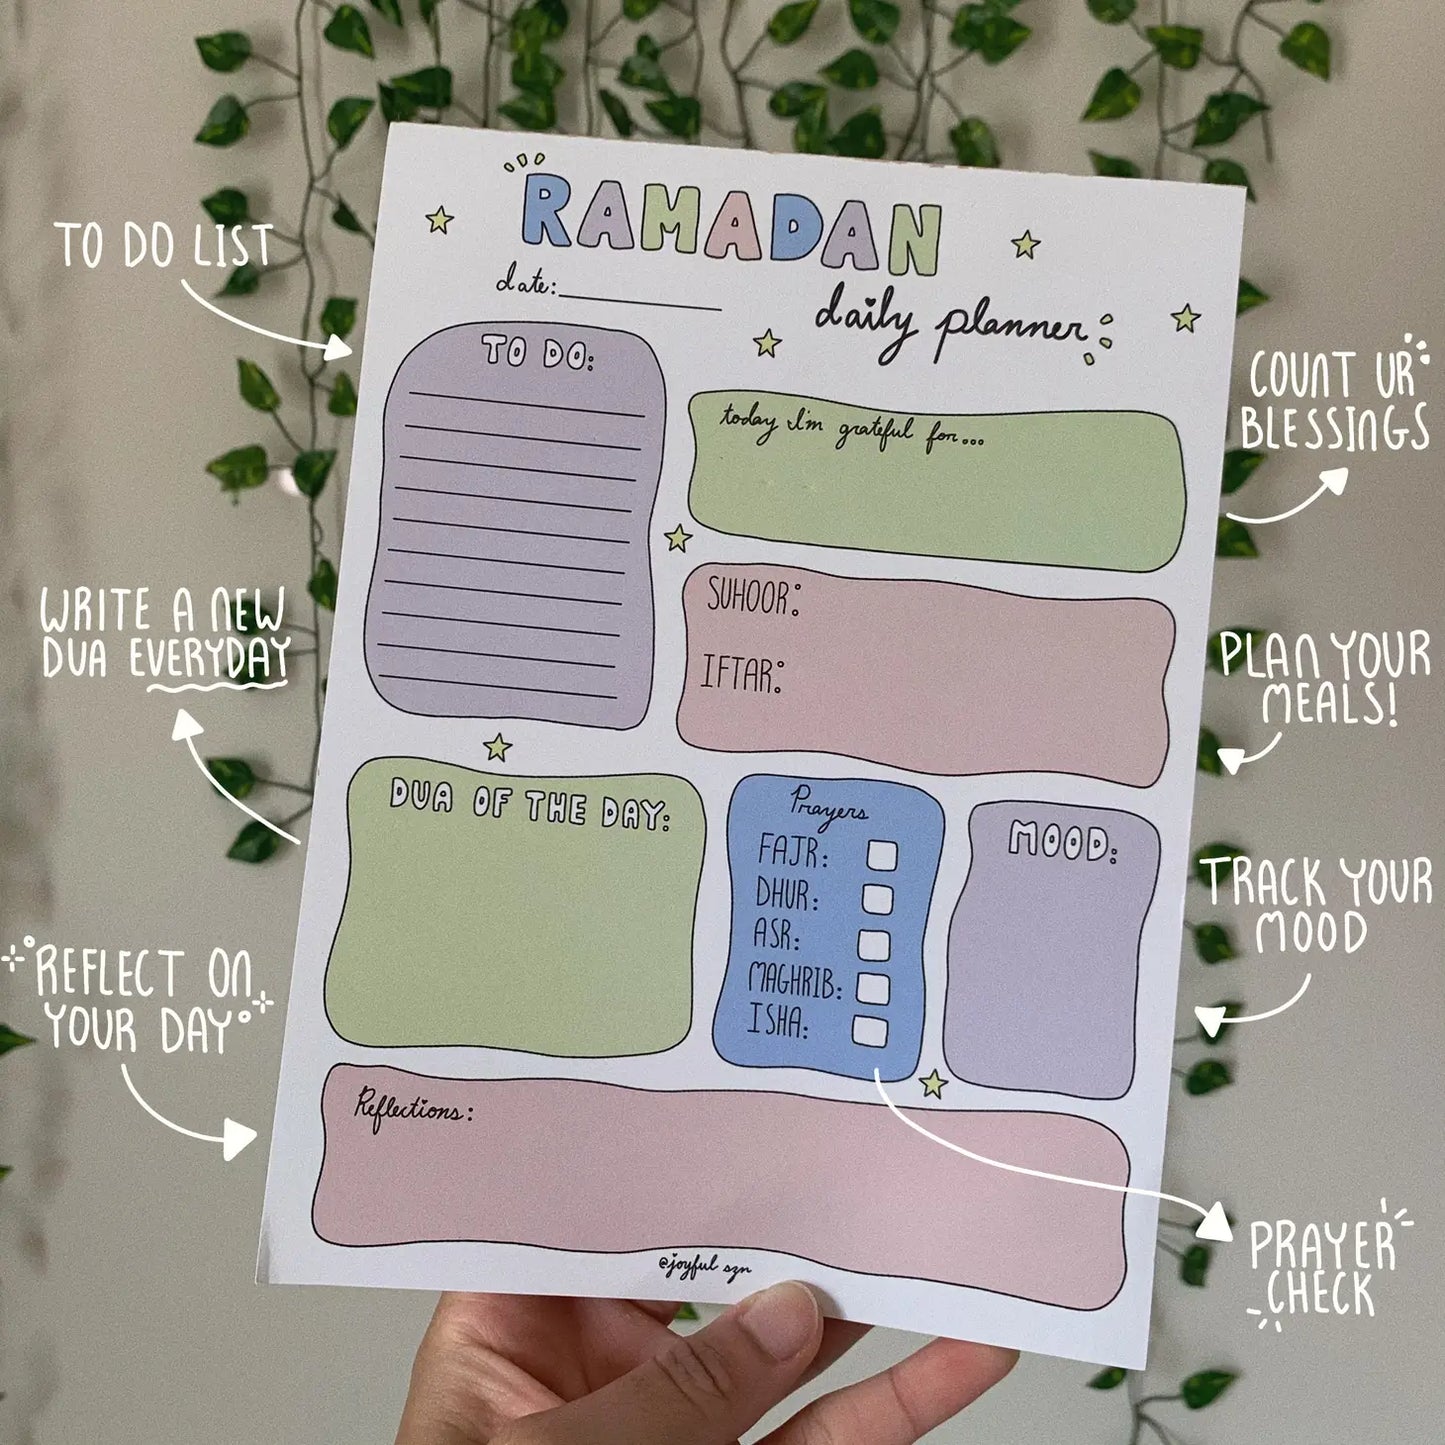 RAMADAN
date:
daily planner
TO DO LIST
TO DO:
today I'm grateful for...
COUNT UR
BLESSINGS
SUHOOR:
IFTAR:
WRITE A NEW
DUA EVERYDAY
PLAN YOUR
MEALS!
DUA OF THE DAY:
Prayers
FAJR:
DHUR:
ASR:
MAGHRIB:
ISHA:
MOOD:
TRACK YOUR
MOOD
REFLECT ON
YOUR DAY
Reflections:
PRAYER
CHECK
@joyful szn